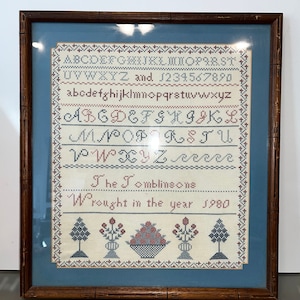 ABCDEFGHIJKLMNOPQRST
UVWXYZ and 1234567890
abcdefghijklmnopqrstuvwxyz
ABCDEFGHIJKL
MNOPQRSTU
VWXYZ
The Tomblinsons
Wrought in the year 1980